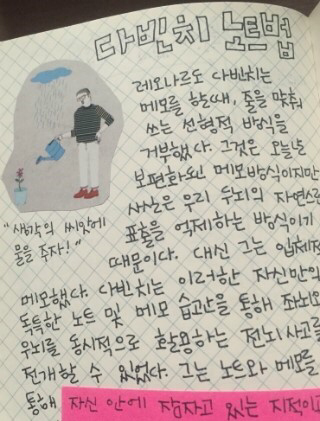 다빈치 노트법
레오나르도 다빈치는
메모를 할때, 줄을 맞춰
쓰는 선형적 방식을
거부했다. 그것은 오늘날
보편화된 메모방식이지만
사실은 우리 두뇌의 자연스런
표출을 억제하는 방식이기
때문이다. 대신 그는 입체적
"생각의 씨앗에
물을 주자!"
메모했다. 다빈치는 이러한 자신만의
독특한 노트 및 메모 습관을 통해 좌뇌와
우뇌를 동시적으로 활용하는 전뇌사고를
전개할 수 있었다. 그는 노트와 메모를
통해 자신 안에 잠자고 있는 지적이고